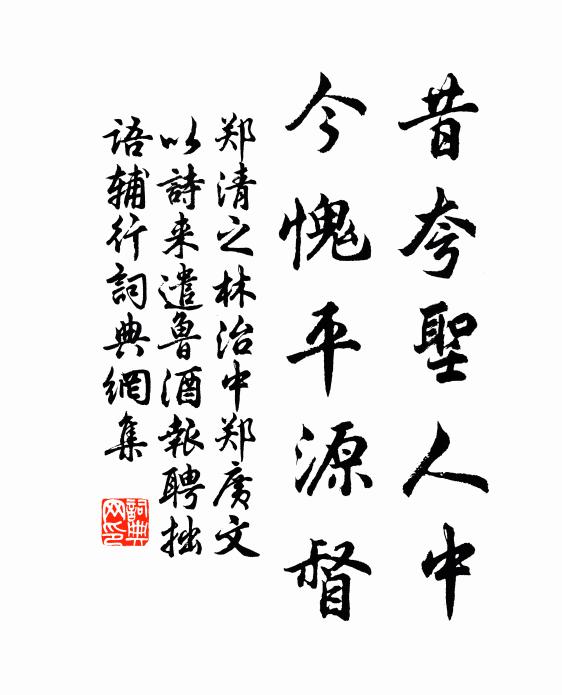 昔夸聖人中
今愧平源督
郑清之林治中郑廣文
以詩来遣魯酒報聘拙
语辅行詞典網集
詞典
网印